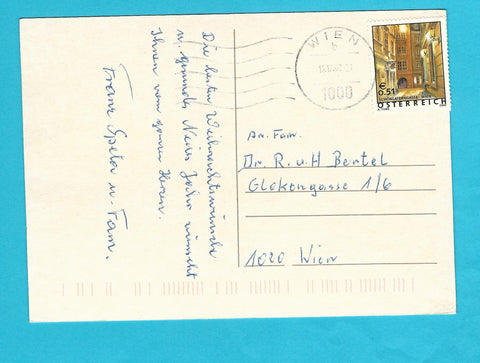 Die besten Weihnachtswünsche
u. gesundes Neues Jahr wünscht
Ihnen von ganzem Herzen.
Franz u. Fam.
WIEN
b
1000
€ 0.51
ÖSTERREICH
An Fam.
Dr. R. u H Bertel
Glokengasse 1/6
1020 Wien